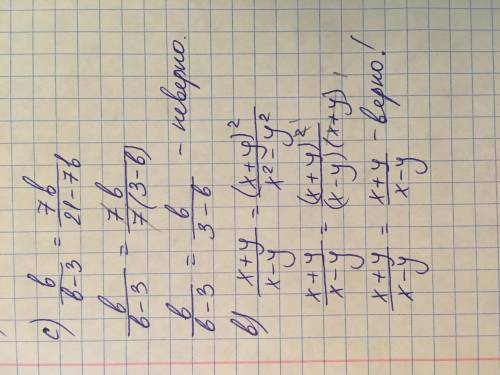 с) в/в-3 = 7в/21-7в
в/в-3 = 7в/7(3-в)
в/в-3 = в/3-в - неверно.
в) x+y/x-y = (x+y)²/x²-y²
x+y/x-y = (x+y)²/(x-y)(x+y)
x+y/x-y = x+y/x-y - верно!